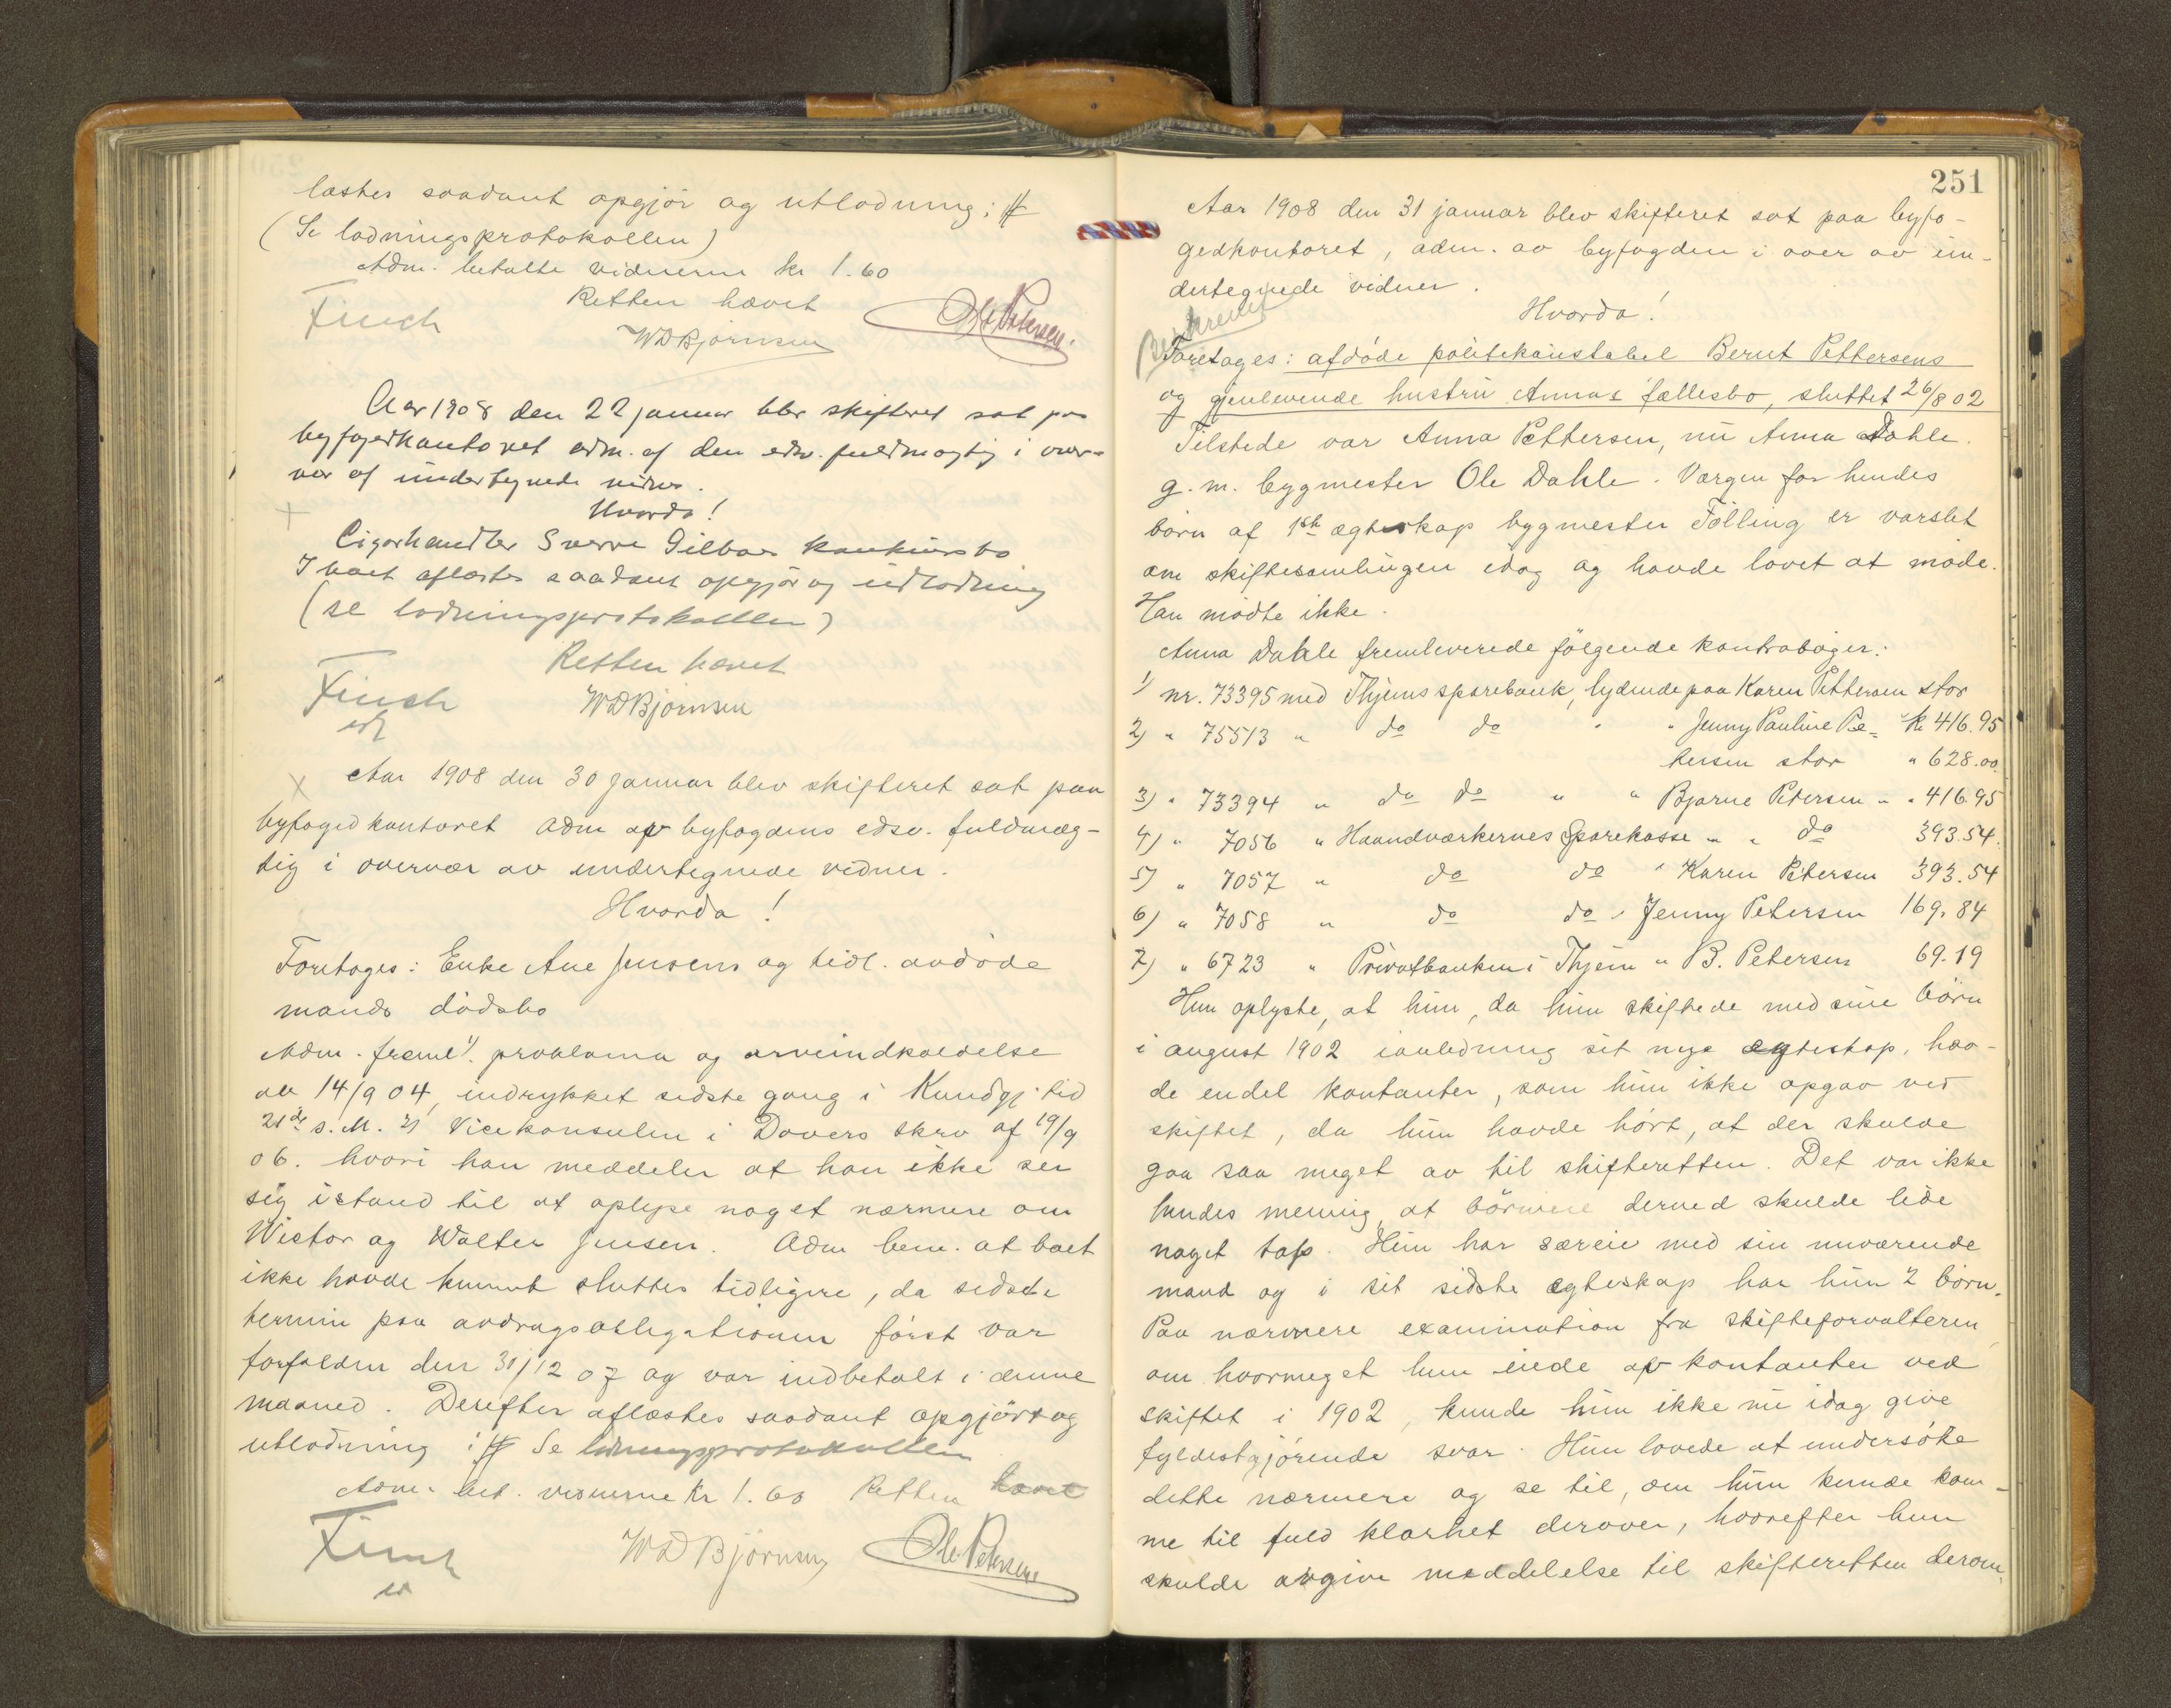 læstes saadant opgjör og utlodning: #
(Se lodningsprotokollen)
Adm. betalte vidnerne kr 1.60
Retten hævet
Finch
WDBjörnsen
Ole Petersen.
Aar 1908 den 22 januar blev skifteret sat paa
byfogedkontoret adm. af den edsv. fuldmægtig i over-
vær af undertegnede vidner.
Hvorda!
Cigarhandler Sverre Gilboes konkursbo
I boet aflæstes saadant opgjör og udlodning
(se lodningsprotokollen)
Retten hævet
Finch
edf
WDBjörnsen
Aar 1908 den 30 januar blev skifteret sat paa
byfogedkontoret adm af byfogdens edsv. fuldmæg-
tig i overvær av undertegnede vidner.
Hvorda!
Foretages: Enke Ane Jensens og tidl. avdöde
mands dödsbo
Adm. freml 1). proklama og arveindkaldelse
av 14/9 04, indrykket sidste gang i Kundgj. tid
21de s. M. 2) Vicekonsulen i Dovers skrv af 19/9
06. hvori han meddeler at han ikke ser
sig istand til at oplyse noget nærmere om
Wictor og Walter Jensen. Adm bem. at boet
ikke havde kunnet sluttes tidligere, da sidste
termin paa avdragsobligationen först var
forfalden den 31/12 07 og var indbetalt i denne
maaned. Derefter aflæstes saadant opgjör og
utlodning: # Se lodningsprotokollen
Adm. bet. vidnerne kr 1.60 Retten hævet
Finch
WDBjörnsen
Ole Petersen
251
Aar 1908 den 31 januar blev skifteret sat paa byfo-
gedkontoret, adm. av byfogden i over av un-
dertegnede vidner.
Hvorda!
Beskrevet
Foretages: afdöde politikonstabel Bernt Pettersens
og gjenlevende hustru Annas fællesbo, sluttet 26/8 02
Tilstede var Anna Pettersen, nu Anna Dahle.
g. m. bygmester Ole Dahle.Værgen for hendes
börn af 1ste ægteskap bygmester Tölling er varslet
om skiftesamlingen idag og havde lovet at möde.
Han mödte ikke.
Anna Dahle fremleverede fölgende kontraböger:
1) nr. 73395 med Thjems sparebank, lydende paa Karen Pettersen stor
2) " 75513 " do do " " Jenny Pauline Pe- kr 416.95
tersen stor " 628.00
3) " 73394 " do do " " Bjarne Petersen " " 416.95
4) " 7056 " Haandværkernes Sparekasse " " do 393.54.
5) " 7057 " do do " Karen Petersen 393.54
6) " 7058 " do do " Jenny Petersen 169.84
7) " 6723 " Privatbanken i Thjem " B. Petersen 69.19
Hun oplyste, at hun, da hun skiftede med sine börn
i august 1902 ianledning sit nye ægteskap, hav-
de endel kontanter, som hun ikke opgav ved
skiftet, da hun havde hört, at der skulde
gaa saa meget av til skifteretten. Det var ikke
hendes mening, at börnene derved skulde lide
noget tap. Hun har særeie med sin nuværende
mand og i sit sidste ægteskap har hun 2 börn.
Paa nærmere examination fra skifteforvalteren,
om hvormeget hun eiede af kontanter ved
skiftet i 1902, kunde hun ikke nu idag give
fyldestgjörende svar. Hun lovede at undersöke
dette nærmere og se til, om hun kunde kom-
me til fuld klarhet derover, hvorefter hun
skulde avgive meddelelse til skifteretten derom.